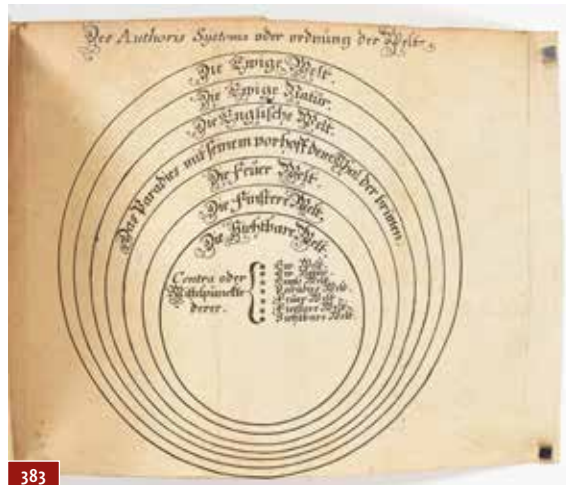 Des Authoris Systema oder ordnung der Welt.
Die Ewige Welt.
Die Ewige Natur.
Die Englische Welt.
Das Paradies mit seinem vorhoff dem Thal der brinen
Die Feuer Welt.
Die Finstere Welt.
Die Sichtbare Welt.
Centra oder
Mittelpunckte
derer.
Ew. Welt.
Ew. Natur
Welt.
Paradies Welt.
Feuer Welt.
Finstere Welt.
Sichtbare Welt.
383